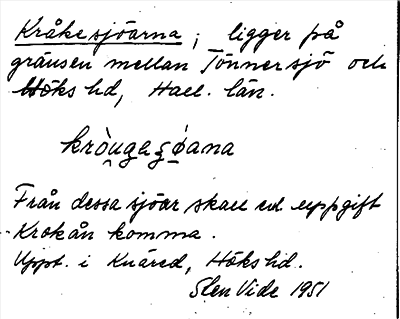 Kråkesjöarna; ligger på
gränsen mellan Tönnersjö och
Höks hd, Hall. län.
kròu̯gaʂø̯ana
Från dessa sjöar skall enl uppgift
Krokån komma.
Uppt. i Knäred, Höks hd.
Sten Vide 1951